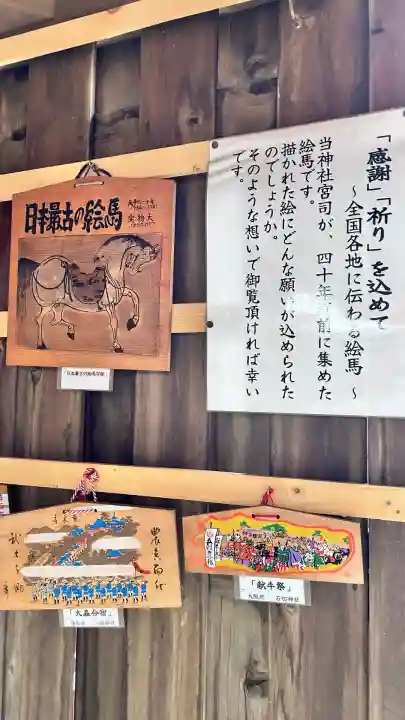 「感謝」「祈り」を込めて
～全国各地に伝わる絵馬～
当神社宮司が、四十年前に集めた
絵馬です。
描かれた絵にどんな願いが込められた
のでしょうか。
そのような想いで御覧頂ければ幸い
です。
日本最古の絵馬
実物大
「献牛祭」
大阪府 石切神社